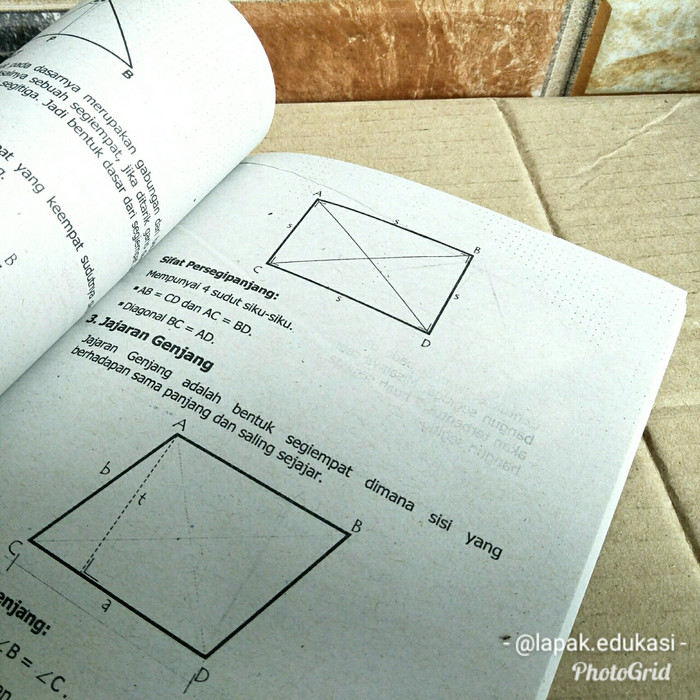 P
B
pada dasarnya merupakan gabungan
sebuah segiempat, jika ditarik
segitiga. Jadi bentuk dasar dari
yang keempat sudutnya
B
A
s
B
s
C
s
s
D
Sifat Persegipanjang:
Mempunyai 4 sudut siku-siku.
▪AB = CD dan AC = BD.
▪Diagonal BC = AD.
3. Jajaran Genjang
Jajaran Genjang adalah bentuk segiempat dimana sisi yang
berhadapan sama panjang dan saling sejajar.
A
b
t
B
C
a
D
∠B = ∠C.
- @lapak.edukasi -
PhotoGrid